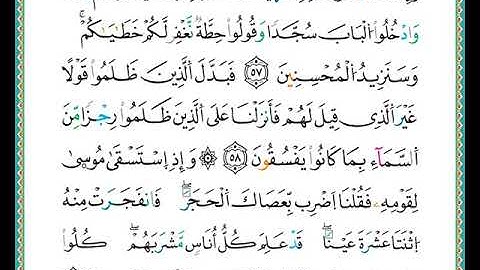 وَادْخُلُوا الْبَابَ سُجَّدًا وَقُولُوا حِطَّةٌ نَّغْفِرْ لَكُمْ خَطَٰيَٰكُمْ
وَسَنَزِيدُ الْمُحْسِنِينَ ٥٧ فَبَدَّلَ الَّذِينَ ظَلَمُوا قَوْلًا
غَيْرَ الَّذِي قِيلَ لَهُمْ فَأَنزَلْنَا عَلَى الَّذِينَ ظَلَمُوا رِجْزًا مِّنَ
السَّمَآءِ بِمَا كَانُوا يَفْسُقُونَ ٥٨ ۞ وَإِذِ اسْتَسْقَىٰ مُوسَىٰ
لِقَوْمِهِ فَقُلْنَا اضْرِب بِّعَصَاكَ الْحَجَرَ فَانفَجَرَتْ مِنْهُ
اثْنَتَا عَشْرَةَ عَيْنًا قَدْ عَلِمَ كُلُّ أُنَاسٍ مَّشْرَبَهُمْ كُلُوا